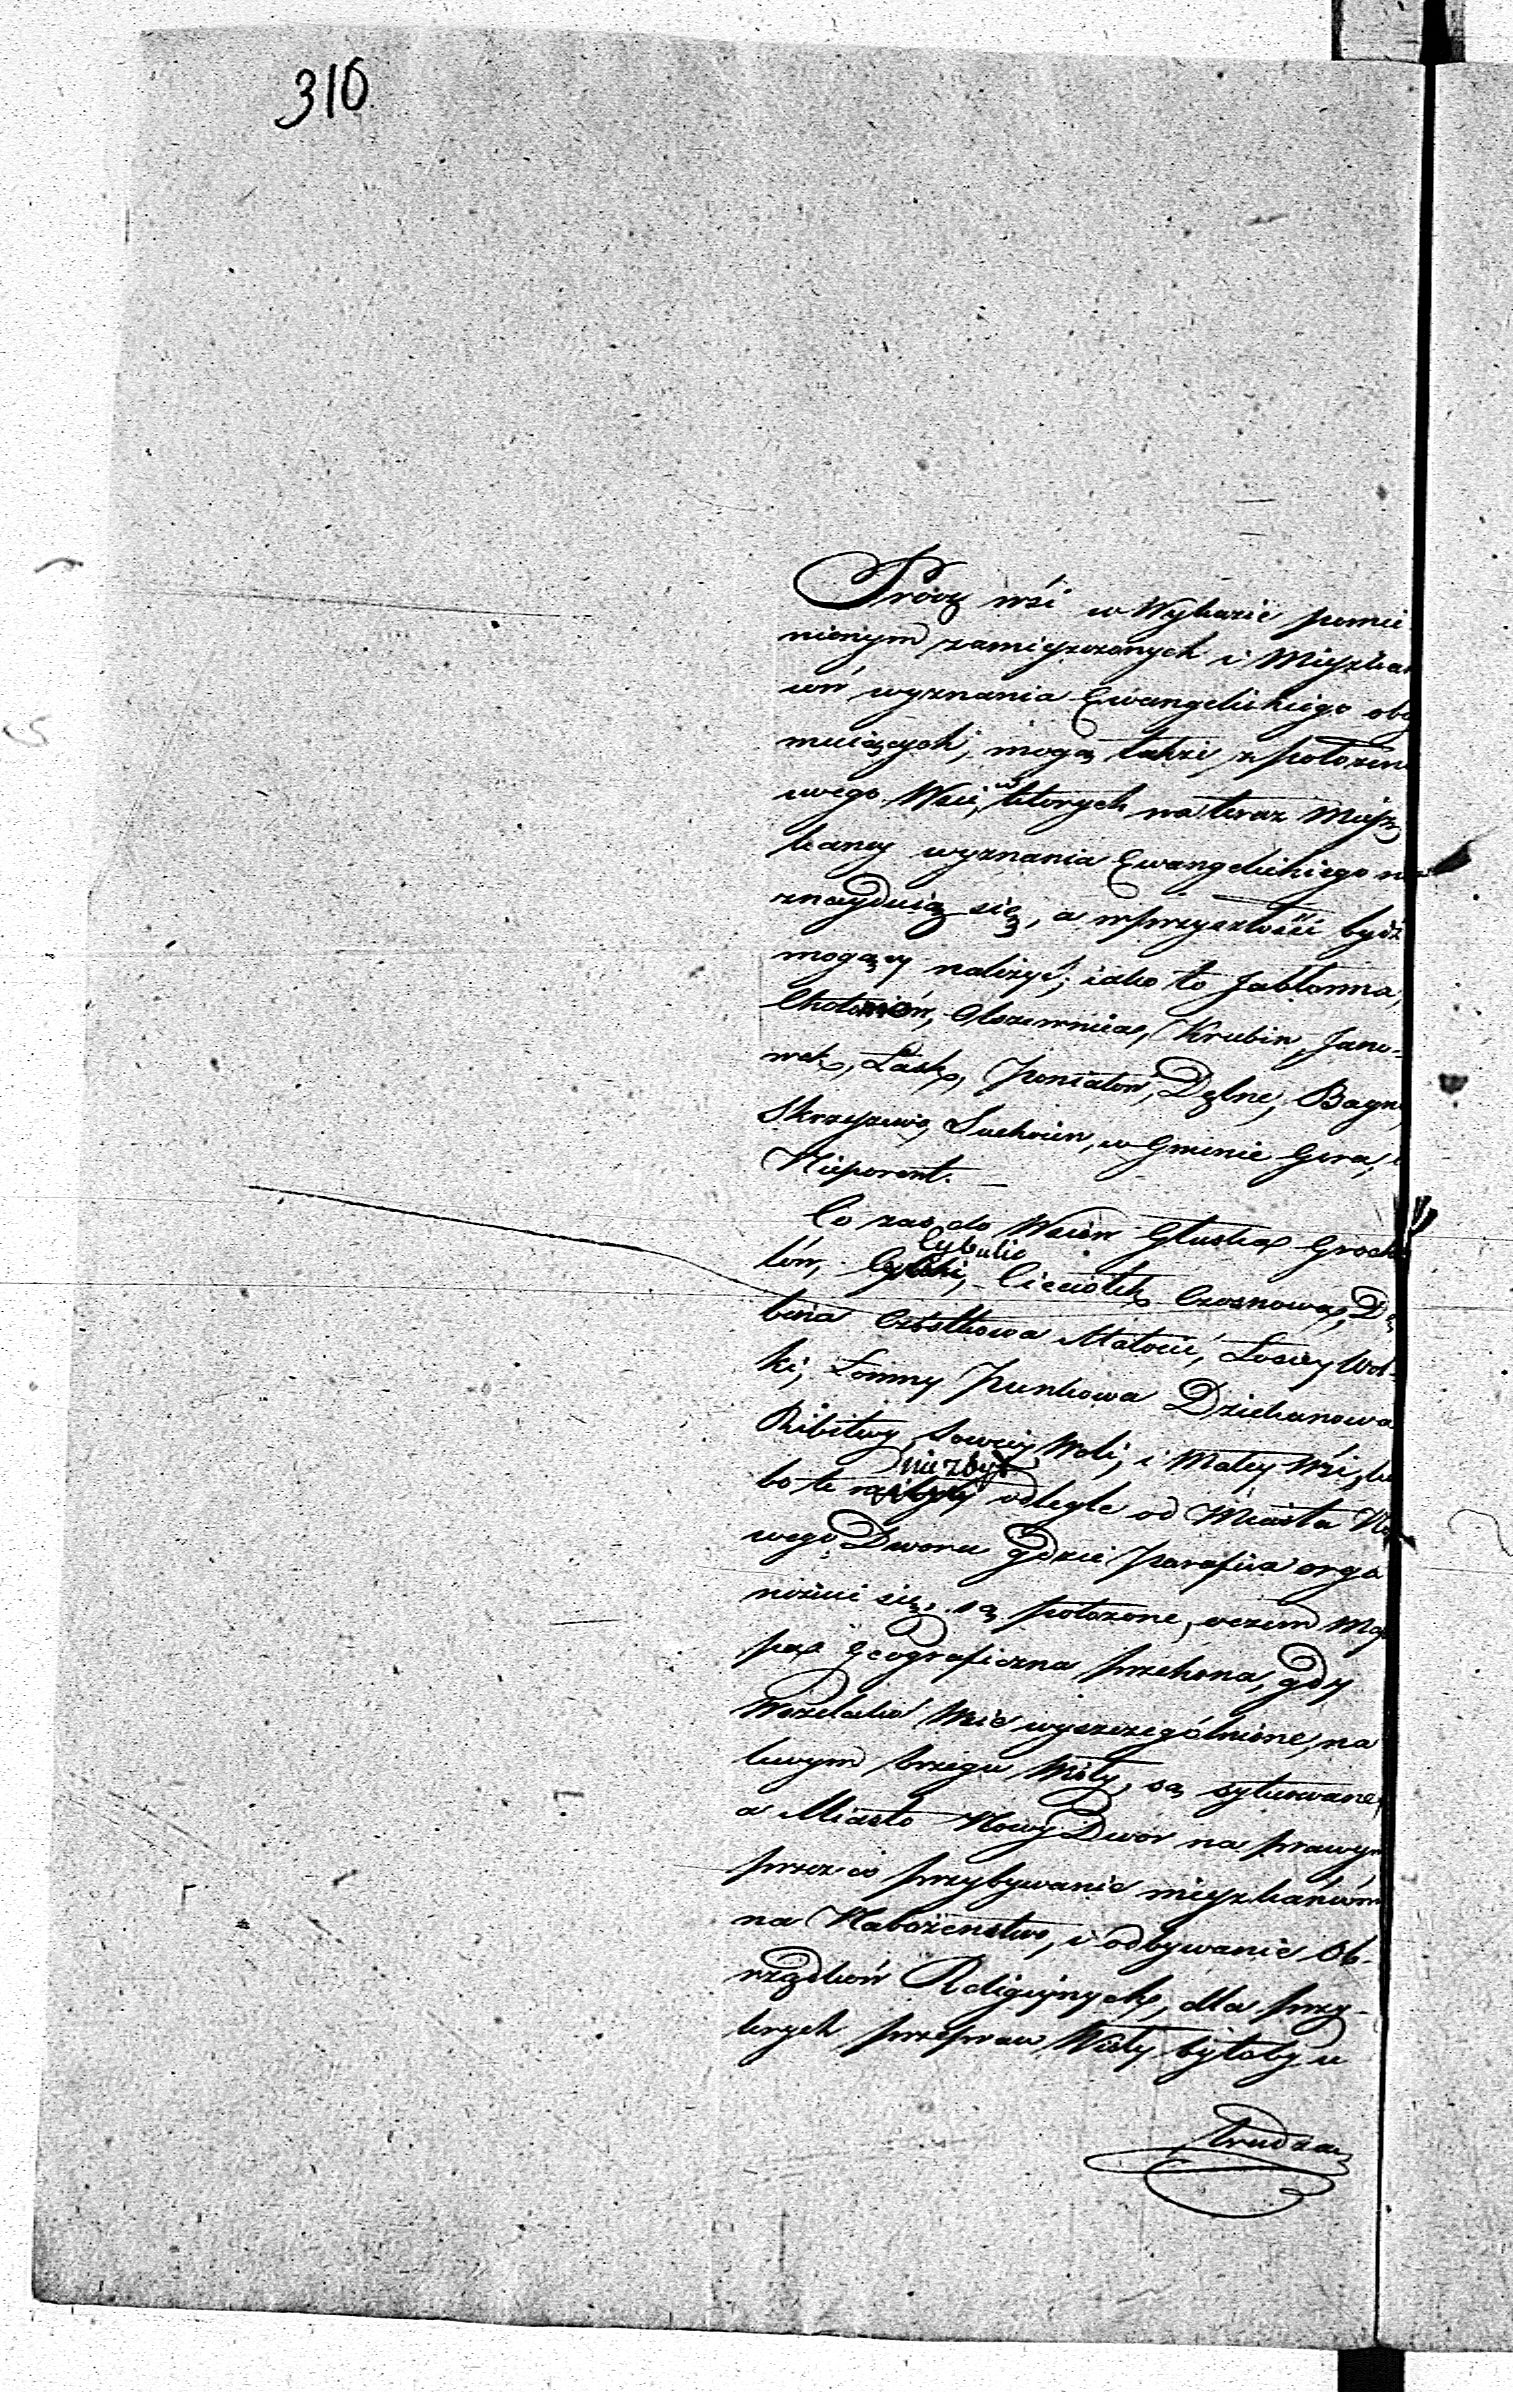 310
Prócz wsi w Wykazie pomie
nionym zamieszczonych i Mieszkań
ców wyznania Ewangelickiego obey
muiących, mogą także z położeni
swego Wsie, w których na teraz Miesz
kańcy wyznania Ewangelickiego nie
znayduią się, a w przyszłości bydź
mogący należyć, iako to Jabłonna,
Chotomów, Olszewnica, Krubin, Jano-
wek, Łask, Poniatów, Dębne, Bagno
Skrzeszewo, Suchocin, w Gminie Gora, i
Nieporent. –
Co zas do Wsiów Głuska Groch
Cybulic
lów, Cieciołek Czosnowa, Dę
bina Cząstkowa Małocic, Łosiey Wol-
ki, Łomny Pienkowa Dziekanowa
Ribitwy, Sowiey Woli, i Małey Wsi, lu
niezbyt
bo te odległe od Miasta No
wego Dworu gdzie Parafiia orga
nizuie się, są położone, oczem Ma
pa Geograficzna przekona, gdy
Wszelako Wsie wyszczególnione, na
lewym brzegu Wisły, są sytuowane,
a Miasto Nowy Dwór na prawym
przez co przybywanie mieszkańców
na Nabożenstwo, i odbywanie Ob-
rządków Religiynych, dla przy-
krych przepraw Wisły byłoby u
trudzon